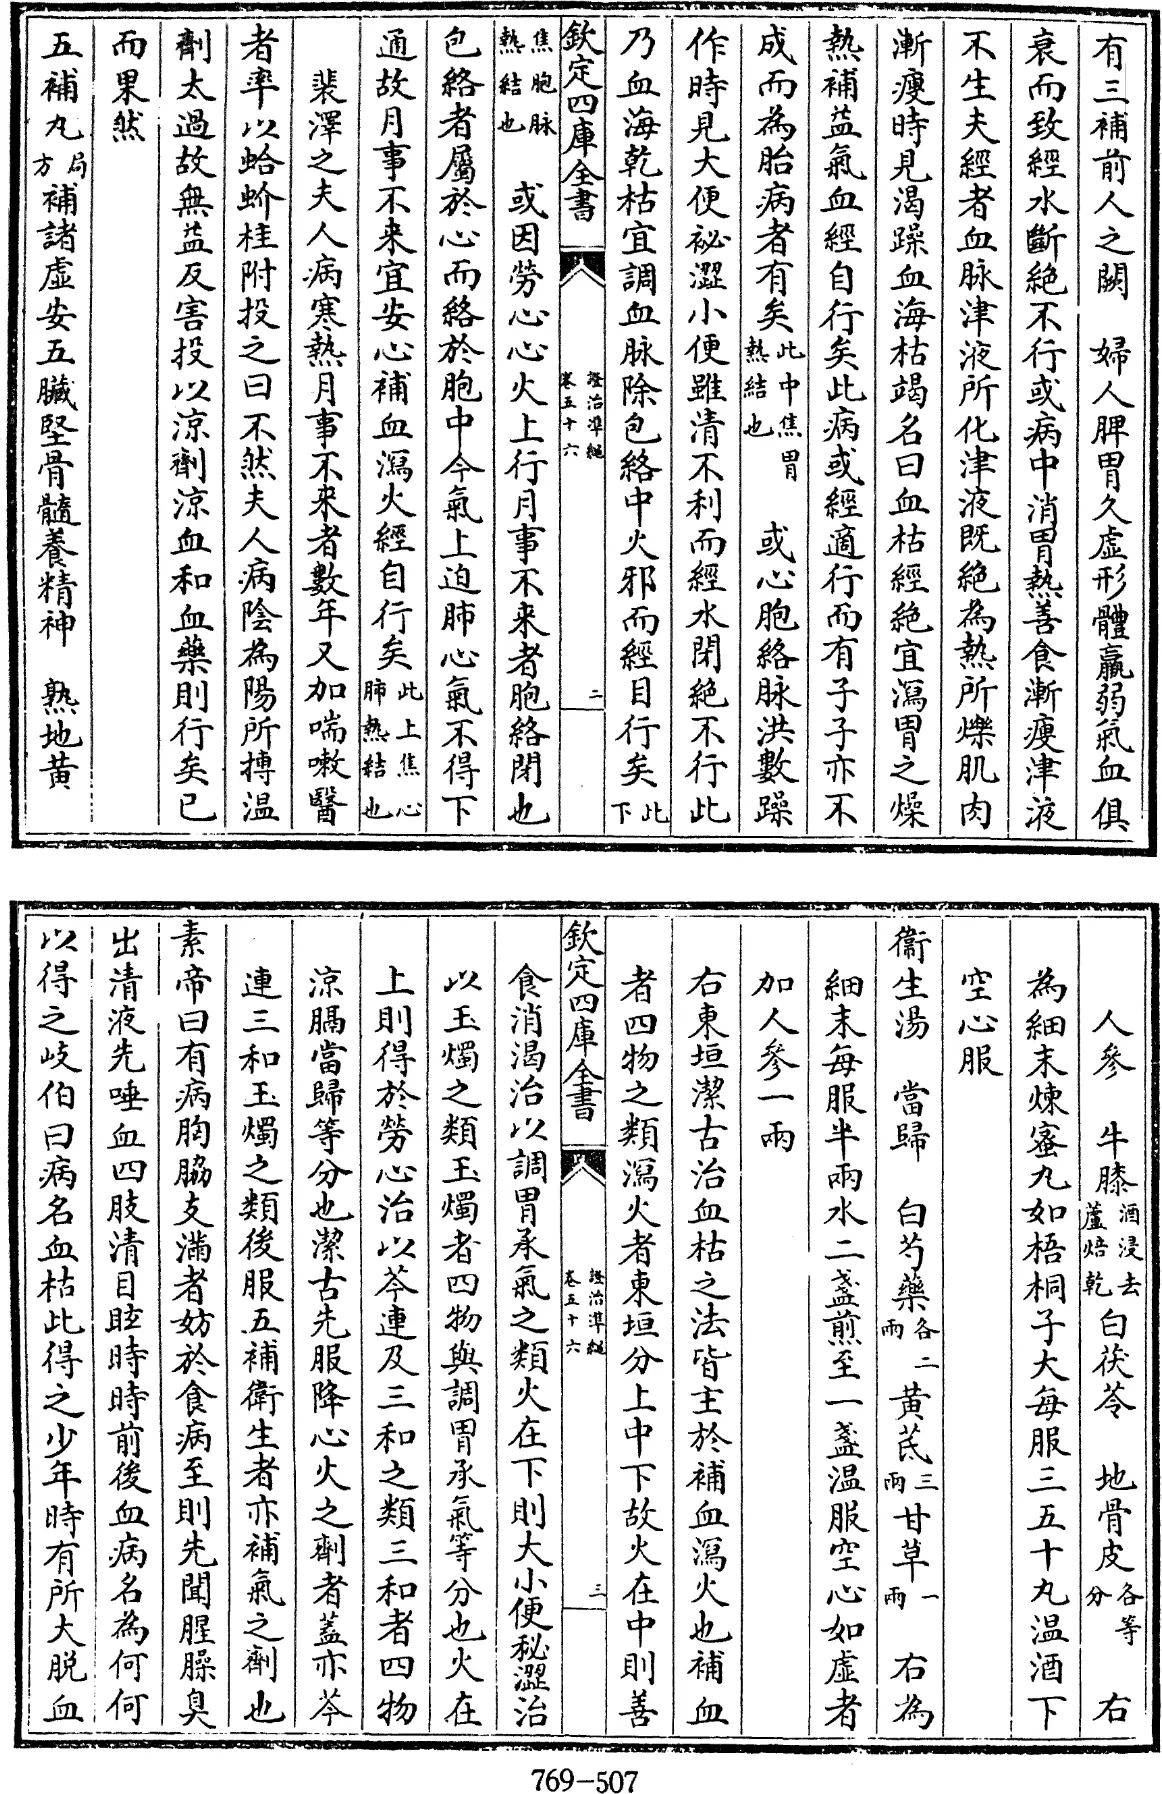 有三補前人之闕　婦人脾胃久虛形體羸弱氣血俱
衰而致經水斷絶不行或病中消胃熱善食漸瘦津液
不生夫經者血脉津液所化津液既絶為熱所爍肌肉
漸瘦時見渴躁血海枯竭名曰血枯經絶宜瀉胃之燥
熱補益氣血經自行矣此病或經適行而有子子亦不
成而為胎病者有矣此中焦胃熱結也　或心胞絡脉洪數躁
作時見大便祕澀小便雖清不利而經水閉絶不行此
乃血海乾枯宜調血脉除包絡中火邪而經自行矣此下
欽定四庫全書　證治凖繩卷五十六　二
焦胞脉熱結也　或因勞心心火上行月事不来者胞絡閉也
包絡者屬於心而絡於胞中今氣上迫肺心氣不得下
通故月事不来宜安心補血瀉火經自行矣此上焦心肺熱結也
裴澤之夫人病寒熱月事不来者數年又加喘嗽醫
者率以蛤蚧桂附投之曰不然夫人病陰為陽所搏温
劑太過故無益反害投以涼劑涼血和血藥則行矣已
而果然
五補丸局方補諸虛安五臟堅骨髓養精神　熟地黄
人參　牛膝酒浸去蘆焙乾白茯苓　地骨皮各等分　右
為細末煉蜜丸如梧桐子大每服三五十丸温酒下
空心服
衞生湯　當歸　白芍藥各二兩黄芪三兩甘草一兩　右為
細末每服半兩水二盞煎至一盞温服空心如虛者
加人參一兩
右東垣潔古治血枯之法皆主於補血瀉火也補血
者四物之類瀉火者東垣分上中下故火在中則善
欽定四庫全書　證治凖繩卷五十六　三
食消渴治以調胃承氣之類火在下則大小便秘澀治
以玉燭之類玉燭者四物與調胃承氣等分也火在
上則得於勞心治以芩連及三和之類三和者四物
涼膈當歸等分也潔古先服降心火之劑者蓋亦芩
連三和玉燭之類後服五補衛生者亦補氣之劑也
素帝曰有病胸脇支滿者妨於食病至則先聞腥臊臭
出清液先唾血四肢清目眩時時前後血病名為何何
以得之岐伯曰病名血枯此得之少年時有所大脱血
769-507